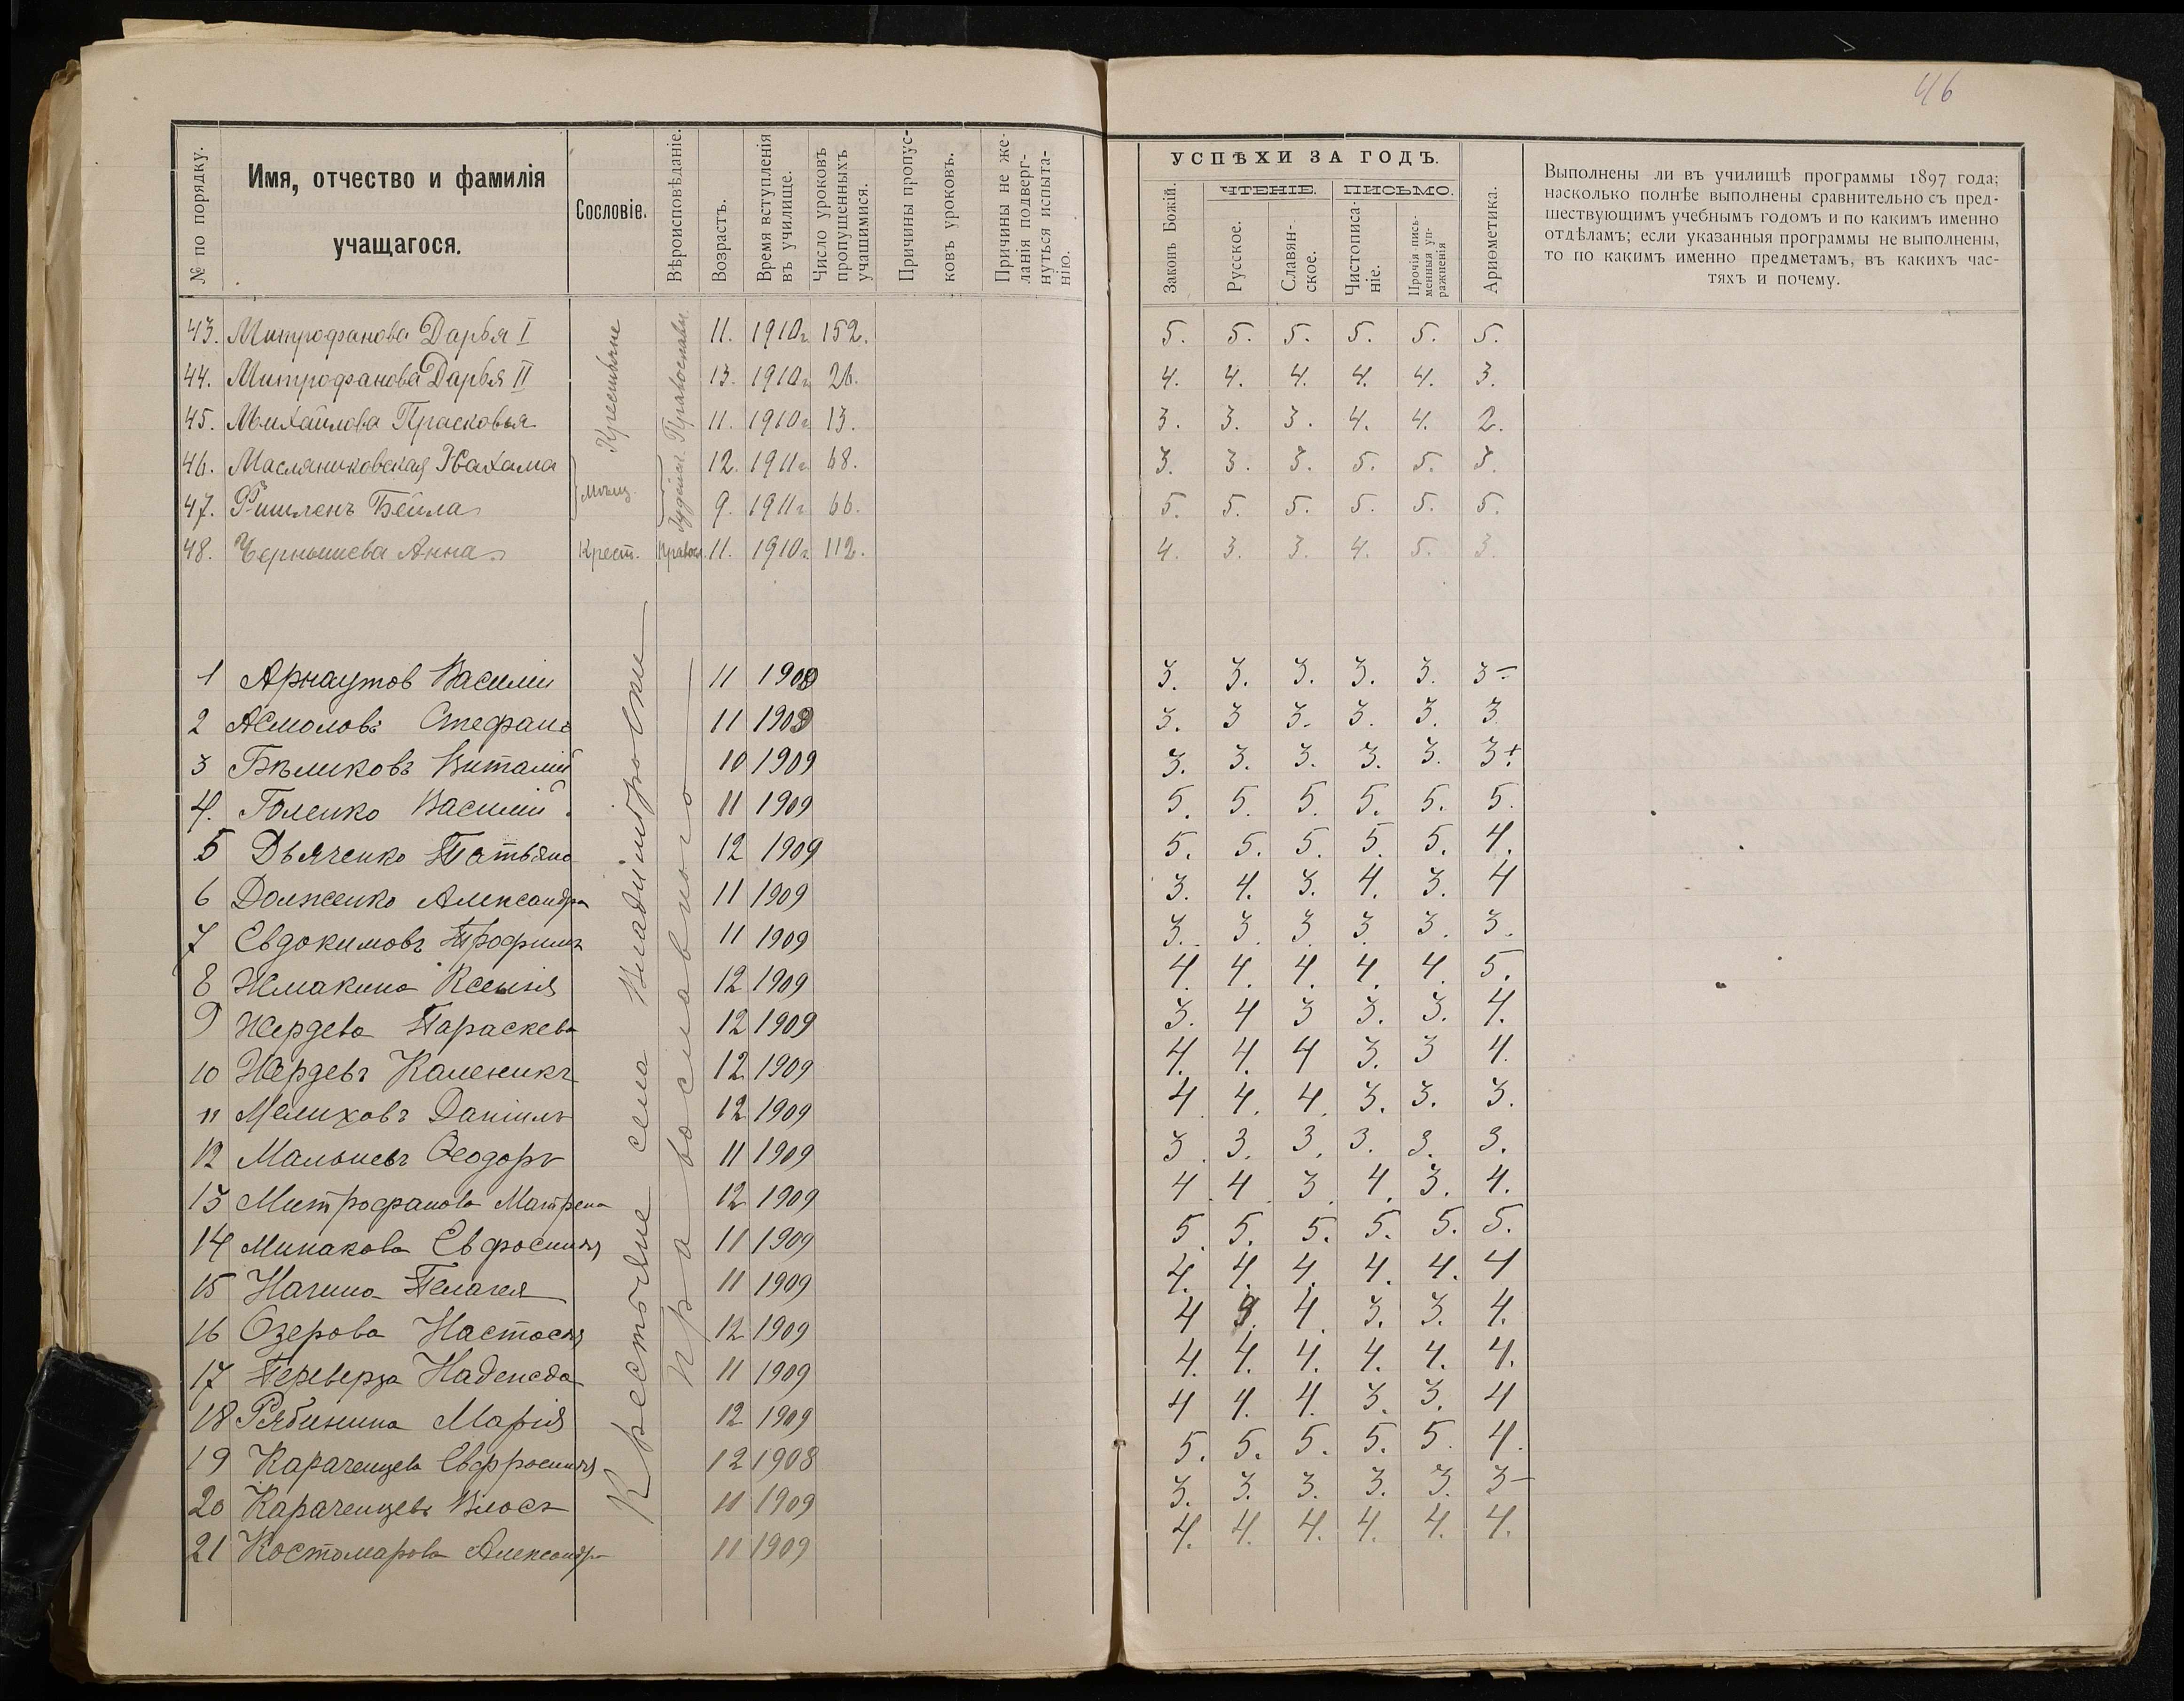 46
№ по порядку.
Имя, отчество и фамилія
учащагося.
Сословіе.
Вѣроисповѣданіе.
Возрастъ.
Время вступленія
въ училище.
Число уроковъ
пропущенныхъ
учащимися.
Причины пропус-
ковъ уроковъ.
Причины не же-
ланія подверг-
нуться испыта-
нію.
УСПѢХИ ЗА ГОДЪ.
Законъ Божій.
ЧТЕНІЕ.
Русское.
Славян-
ское.
ПИСЬМО.
Чистописа-
ніе.
Прочія пись-
менныя уп-
ражненія
Ариѳметика.
Выполнены ли въ училищѣ программы 1897 года;
насколько полнѣе выполнены сравнительно съ пред-
шествующимъ учебнымъ годомъ и по какимъ именно
отдѣламъ; если указанныя программы не выполнены,
то по какимъ именно предметамъ, въ какихъ час-
тяхъ и почему.
Крестьяне
Православн.
43. Митрофанова Дарья I 11. 1910г. 152. 5. 5. 5. 5. 5. 5.
44. Митрофанова Дарья II 13. 1910г. 26. 4. 4. 4. 4. 4. 3.
45. Михайлова Прасковья 11. 1910г. 13. 3. 3. 3. 4. 4. 2.
46. Масляниковская 12. 1911г. 68. 3. 3. 3. 5. 5. 3.
Мѣщ. Іудейск.
47. Фишленъ Бейла 9. 1911г. 66. 5. 5. 5. 5. 5. 5.
48. Чернышева Анна Крест. Правосл. 11. 1910г. 112. 4. 3. 3. 4. 5. 3.
Крестьяне села
Православнаго
1 Арнаутов Василий 11 1909 3. 3. 3. 3. 3. 3-
2 Асмоловъ Стефанъ 11 1909 3. 3 3. 3. 3. 3
3 Бѣликовъ Виталій 10 1909 3. 3. 3. 3. 3. 3+
4. Голенко Василий 11 1909 5. 5. 5. 5. 5. 5.
5 Дьяченко Татьяна 12 1909 5. 5. 5. 5. 5. 4.
6 Долженко Александра 11 1909 3. 4. 3. 4. 3. 4
7 Евдокимовъ Трофимъ 11 1909 3. 3. 3. 3. 3. 3.
8 Жмакина Ксенія 12 1909 4. 4. 4. 4. 4. 5.
9 Жердева Параскева 12 1909 3. 4 3 3. 3. 4.
10 Жердевъ Каленикъ 12 1909 4. 4. 4 3. 3 4.
11 Мелиховъ Даніилъ 12 1909 4. 4. 4. 3. 3. 3.
12 Мальцевъ Ѳеодоръ 11 1909 3. 3. 3. 3. 3. 3.
13 Митрофанова Матрена 12 1909 4. 4. 3. 4. 3. 4.
14 Минакова Евфросинія 11 1909 5. 5. 5. 5. 5. 5.
15 Нагина Пелагея 11 1909 4. 4. 4. 4. 4. 4
16 Озерова Настасія 12 1909 4 3. 4. 3. 3. 4.
17 Переверза Надежда 11 1909 4. 4. 4. 4. 4. 4.
18 Рябинина Марія 12 1909 4 4. 4. 3. 3. 4
19 Караченцева Евфросинія 12 1908 5. 5. 5. 5. 5. 4.
20 Караченцевъ Власъ 11 1909 3. 3. 3. 3. 3. 3-
21 Костомарова Александра 11 1909 4. 4. 4. 4. 4. 4.